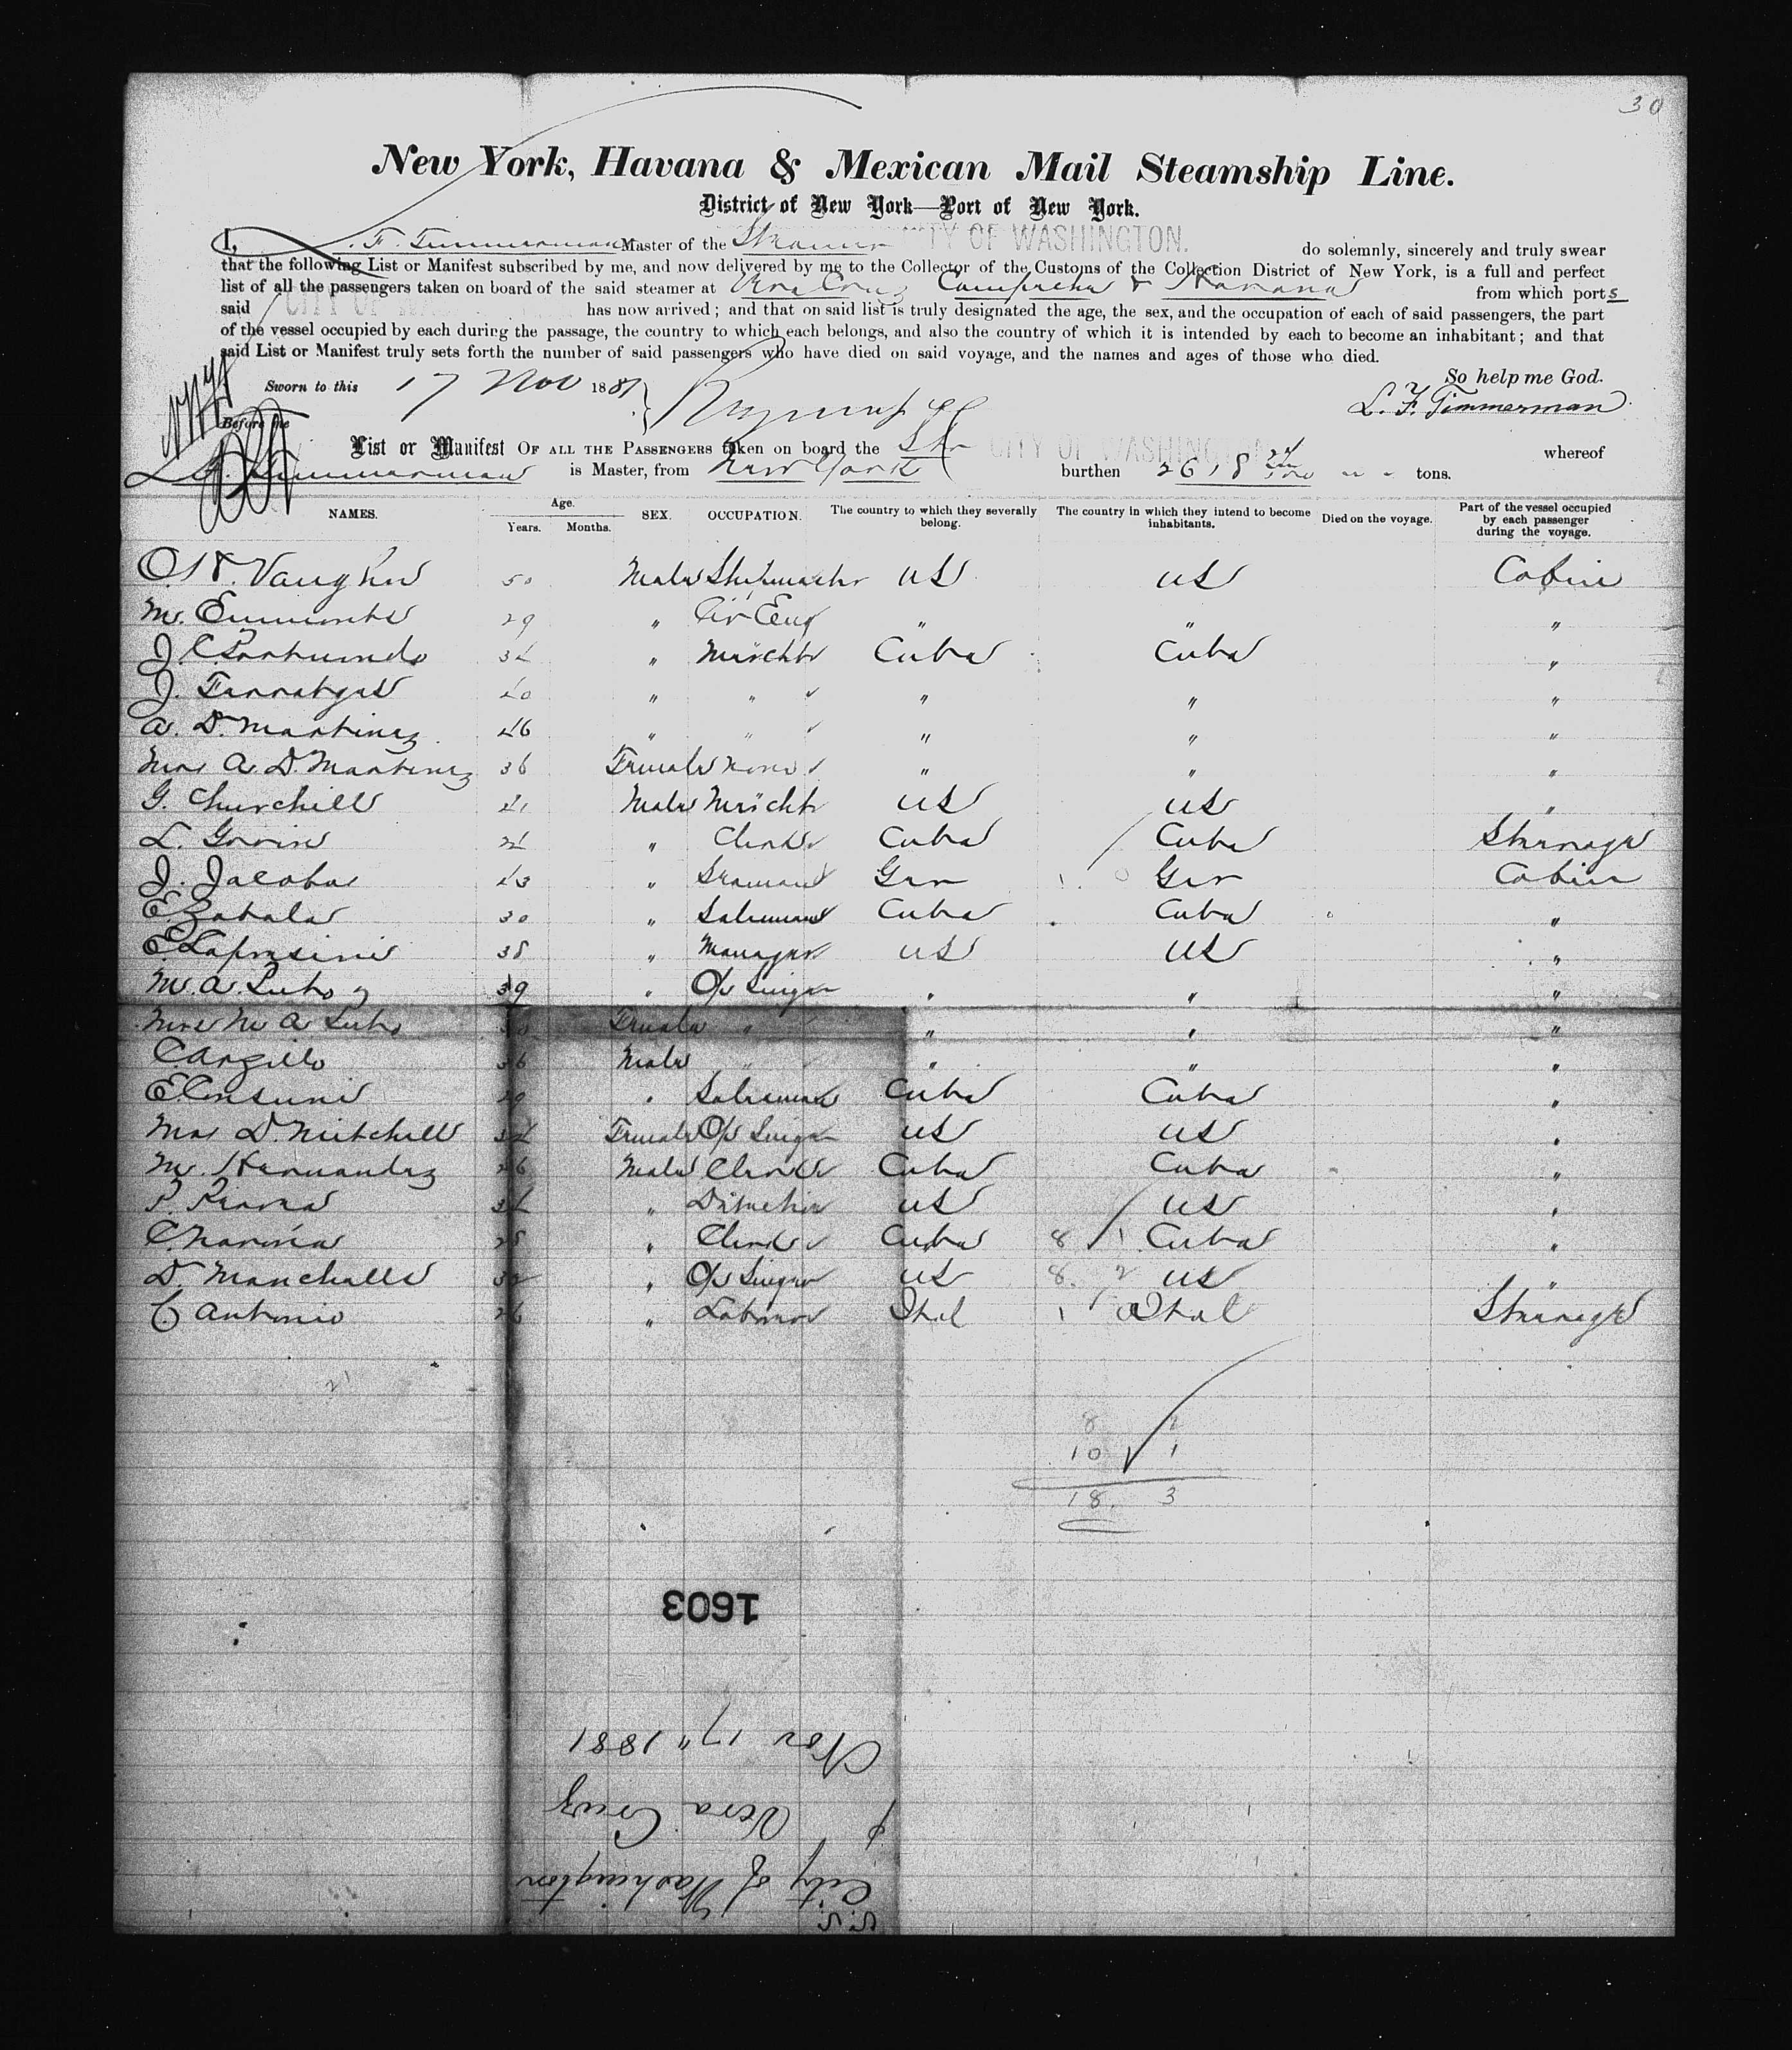 30
New York, Havana & Mexican Mail Steamship Line.
District of New York—Port of New York.
I, L. F. Timmerman Master of the Steamer CITY OF WASHINGTON. do solemnly, sincerely and truly swear
that the following List or Manifest subscribed by me, and now delivered by me to the Collector of the Customs of the Collection District of New York, is a full and perfect
list of all the passengers taken on board of the said steamer at Vera Cruz Campeche & Havana from which ports
said CITY OF has now arrived; and that on said list is truly designated the age, the sex, and the occupation of each of said passengers, the part
of the vessel occupied by each during the passage, the country to which each belongs, and also the country of which it is intended by each to become an inhabitant; and that
said List or Manifest truly sets forth the number of said passengers who have died on said voyage, and the names and ages of those who died.
So help me God.
Sworn to this 17 Nov 1881
L. F. Timmerman
Before me
List or Manifest OF ALL THE PASSENGERS taken on board the Str CITY OF WASHINGTON whereof
L. F. Timmerman is Master, from New York burthen 2618 tons.
NAMES. Age. Years. Months. SEX. OCCUPATION. The country to which they severally belong. The country in which they intend to become inhabitants. Died on the voyage. Part of the vessel occupied by each passenger during the voyage.
Vaughn 50 Male US US Cabin
M. Emmonts 29 " Civ Eng " " "
J. C. Portuondo " Mercht Cuba Cuba "
J. " " " " "
A. D. Martinez 46 " " " " "
Mrs A. D. Martinez 36 Female None " " "
G. Churchill Male Mercht US US "
L. Govin " Clerk Cuba Cuba Steerage
J. Jacobs 43 " Seaman Ger Ger Cabin
E. Zabala 30 " Salesman Cuba Cuba "
38 " Manager US US "
M. A. 39 " Op Singer " " "
Mrs M A Female " " " "
C Argillo 36 Male " " " "
20 " Salesman Cuba Cuba "
Mrs D. Mitchell Female Op Singer US US "
M. Hernandez 26 Male Clerk Cuba Cuba "
P. " US US "
C. " Clerk Cuba 8 1 Cuba "
D. 32 " Op Singer US 8. 2 US "
C Antonio 26 " Laborer Ital 1 Ital Steerage
21
8 2
10 1
18. 3
1603
S.S.
City of Washington
Vera Cruz
Nov 17" 1881